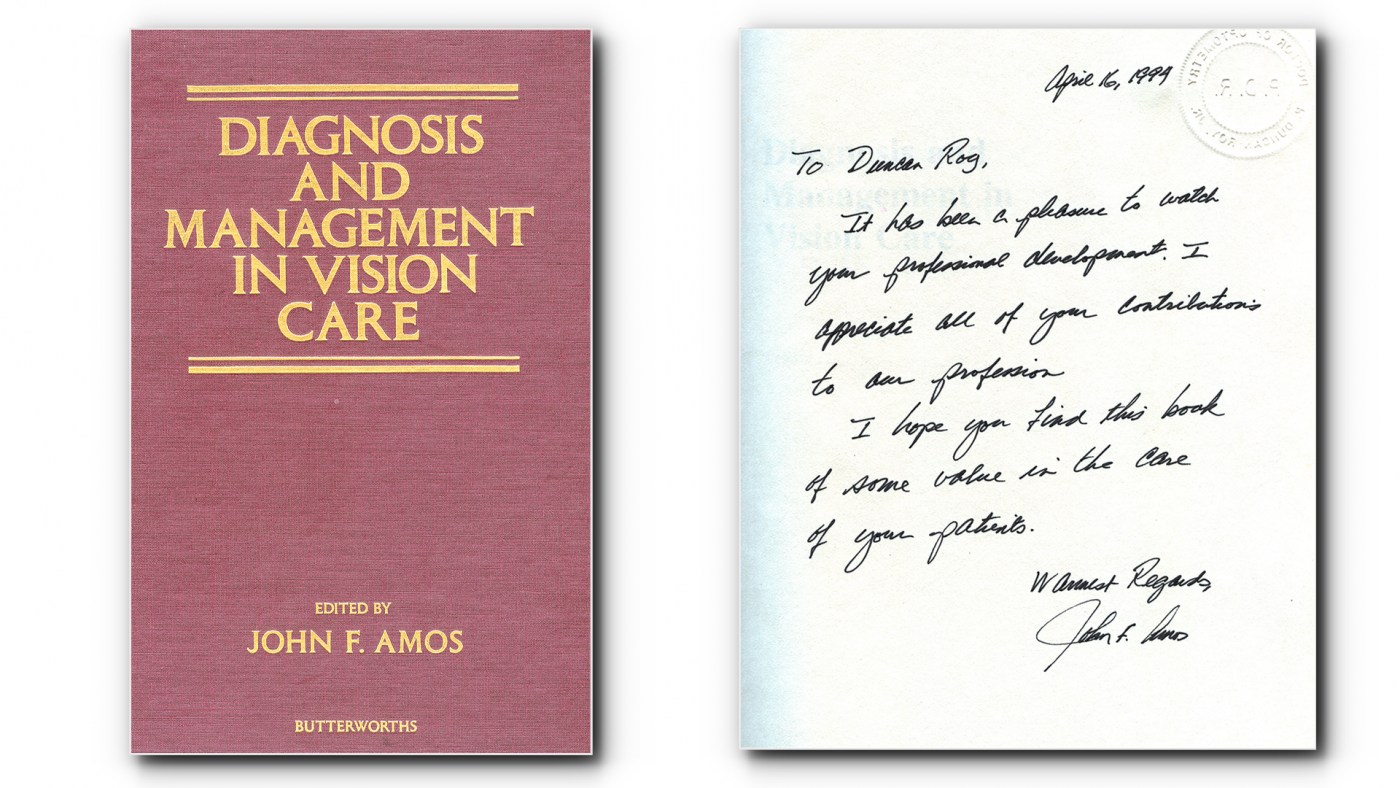 DIAGNOSIS
AND
MANAGEMENT
IN VISION
CARE
EDITED BY
JOHN F. AMOS
BUTTERWORTHS
April 16, 1994
DOCTOR OF OPTOMETRY
P. D. R.
P DUNCAN ROY, JR.
Diagnosis and
Management in
Vision Care
To Duncan Roy,
It has been a pleasure to watch
your professional development. I
appreciate all of your contributions
to our profession
I hope you find this book
of some value in the care
of your patients.
Warmest Regards,
John F. Amos